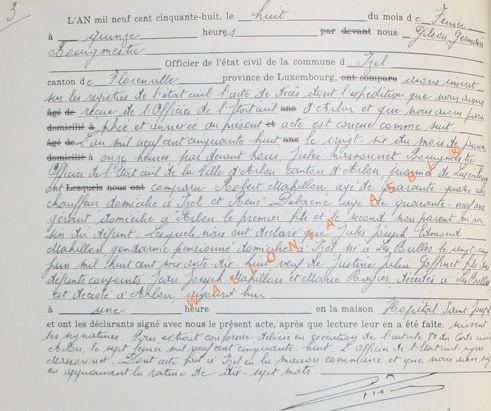 3
L'AN mil neuf cent cinquante-huit, le huit du mois de Février
à quinze heures par devant nous Gilson, Germain
Bourgmestre
Officier de l'état civil de la commune d Izel
canton de Florenville province de Luxembourg, ont comparu inscrivons
sur les registres de l'état civil l'acte de décès dont l'expédition que nous avons
âgé de reçue de l'Officier de l'Etat civil ans d'Arlon et que nous avons
domicilié à et annexée au présent et acte est conçue comme suit
âgé de L'an mil neuf cent cinquante huit ans le vingt du mois de
domicilié à onze heures par devant nous, Jules Bourgmestre
Officier de l'Etat civil de la ville d'Arlon canton d'Arlon, province de Luxembourg
ont Lesquels nous ont comparu Robert Mahillon âgé de quarante quatre ans
chauffeur domicilié à Izel et René âgé de quarante-neuf ans
gérant domicilié à Arlon le premier fils et le second non parent ni
sin du défunt. Lesquels nous ont déclaré que Jules Joseph Edmond
Mahillon gendarme pensionné domicilié à Izel né à La Bulles le vingt cinq
juin mil huit cent soixante dix huit veuf de Justine Julie Goffinet fils des
défunts conjoints Jean Joseph Mahillon et Marie décédés à La Bulles
est décédé à Arlon
à une heure en la maison Hopital Saint Joseph
et ont les déclarants signé avec nous le présent acte, après que lecture leur en a été faite. suivent
les signatures. Pour extrait conforme délivré en exécution de l'article 80 du Code civil
Arlon, le sept février mil neuf cent cinquante-huit. L'Officier de l'Etat civil, signé
Dont acte fait à Izel en la maison commune et que nous avons signé
en approuvant la rature de dix-sept mots.
WALLONIA ASBL ®